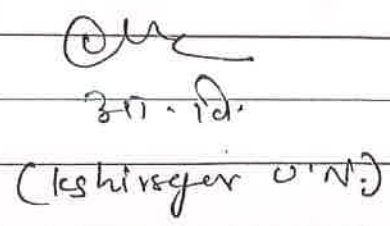 आ. वि.
(kshirsger U.N.)